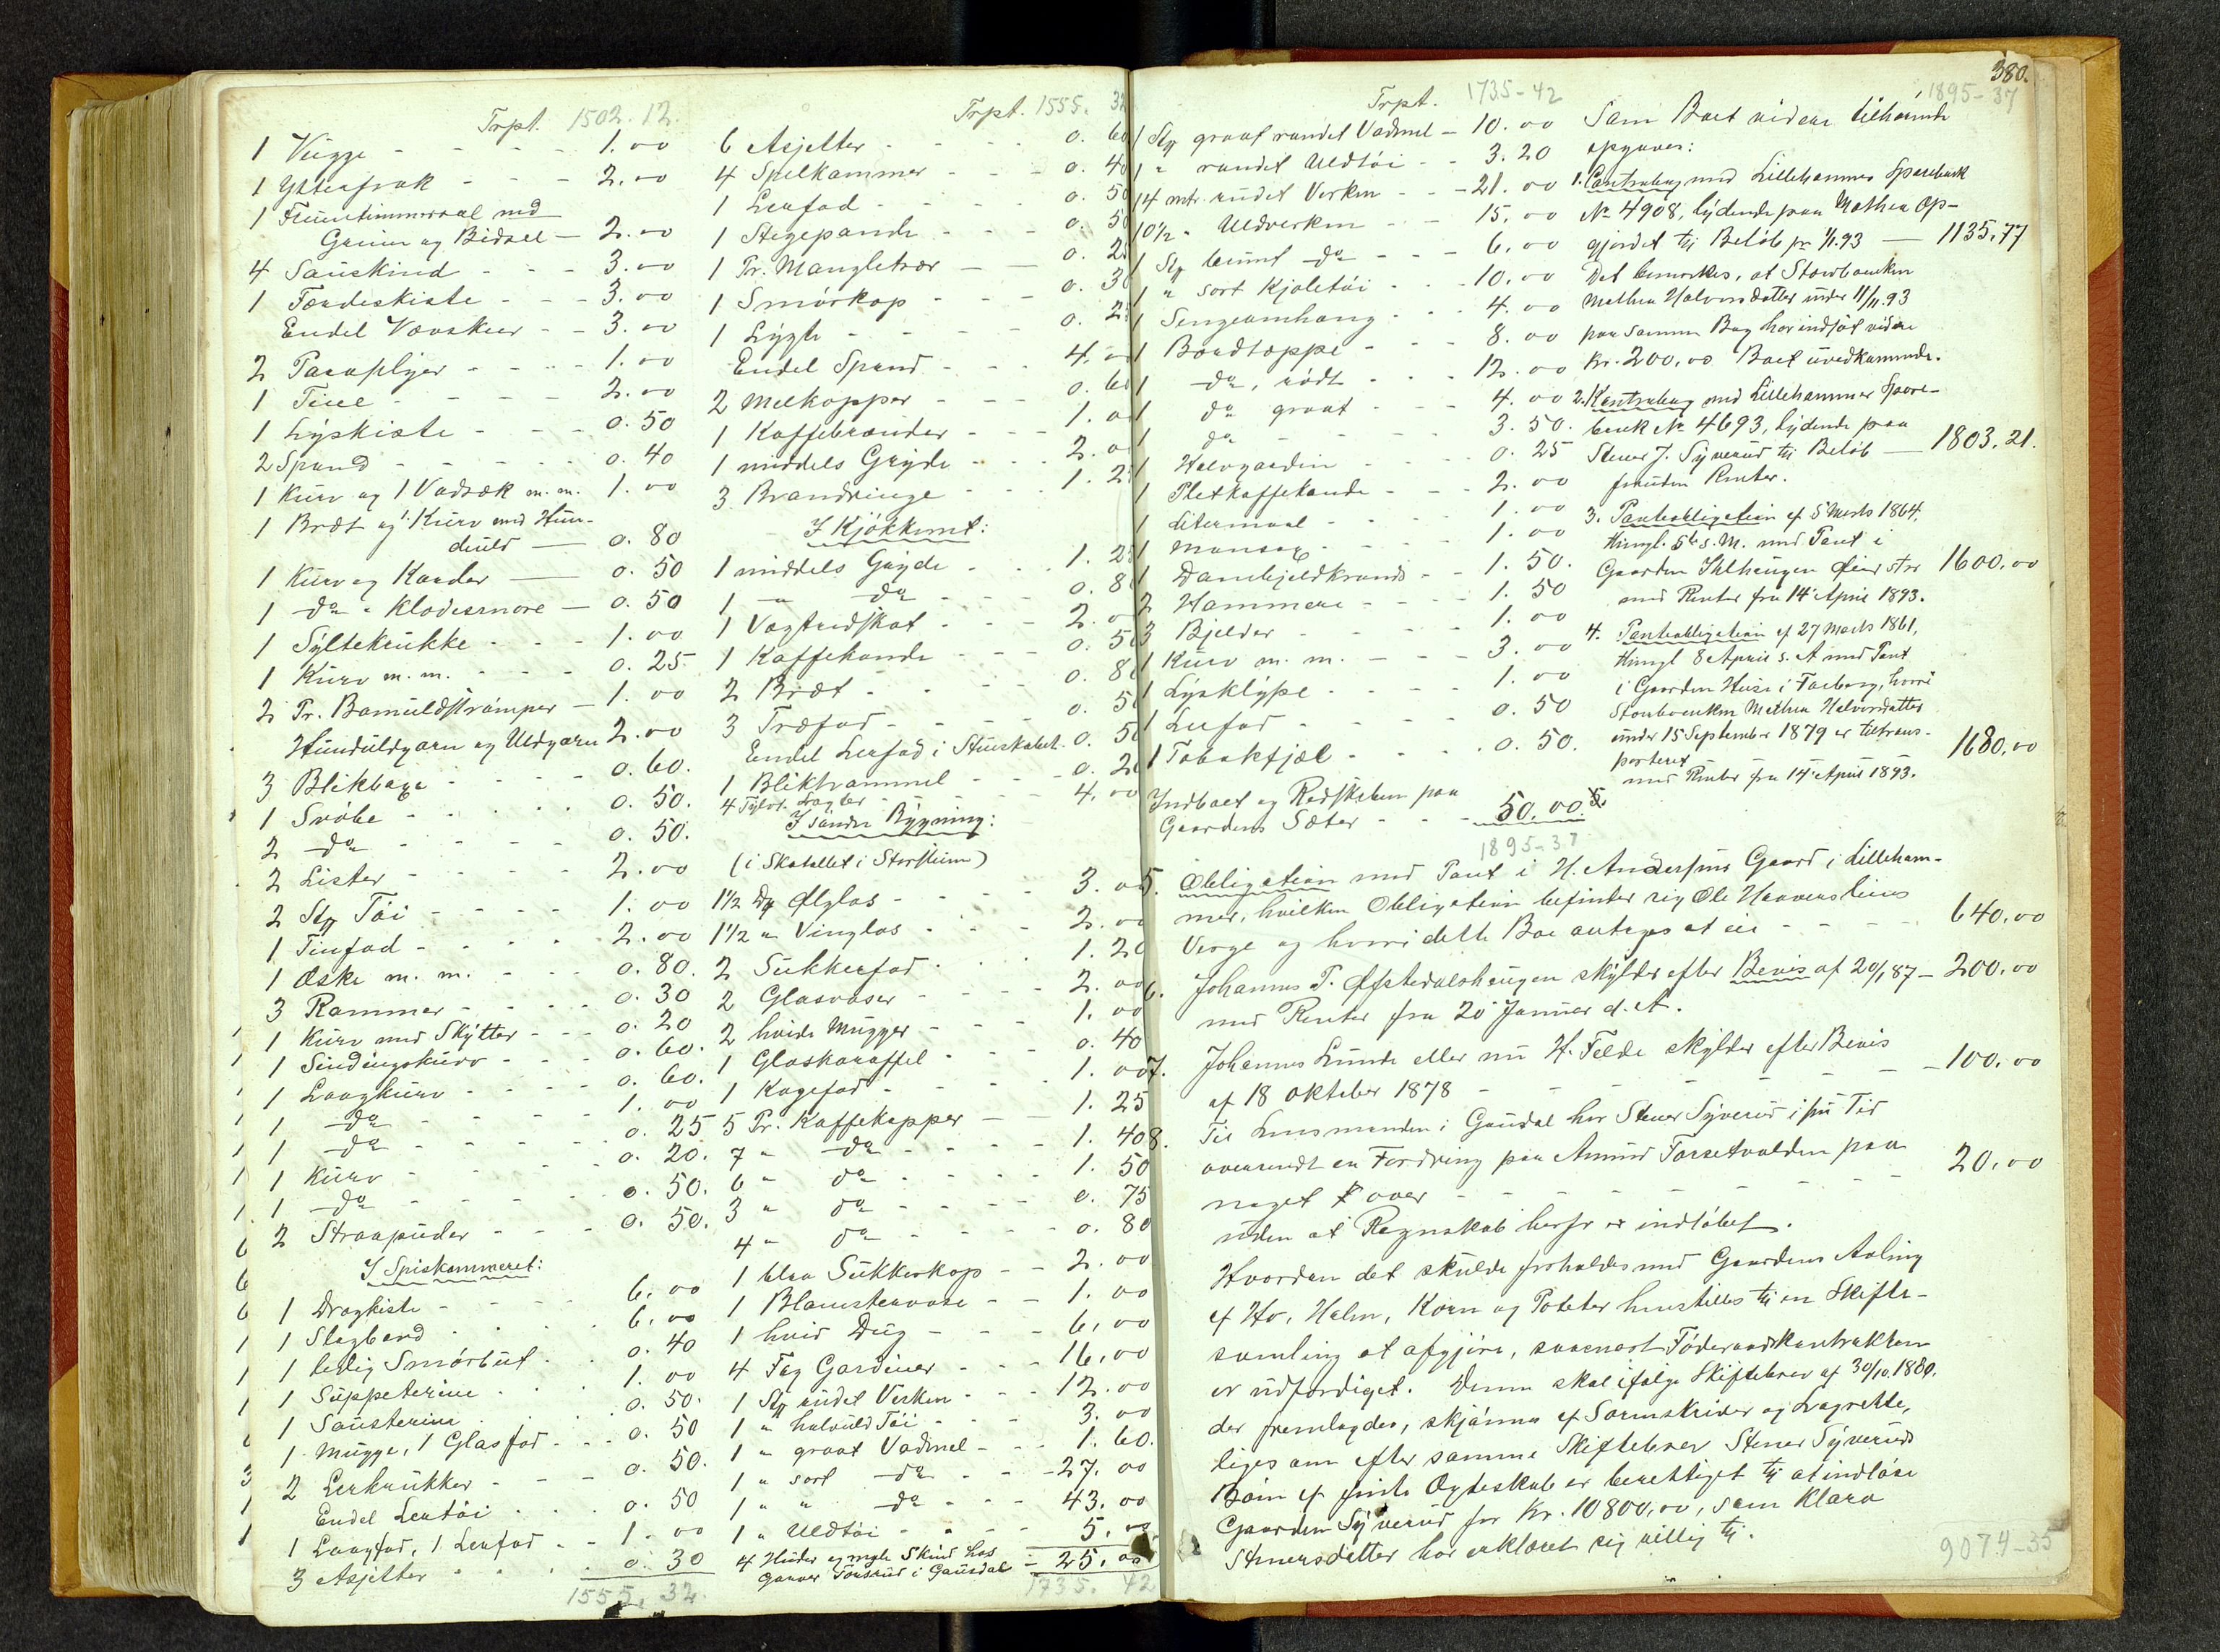 Trpt. 1502.12.
1 Vugge - - - - 1.00
1 Ytterfrak - - - 2.00
1 Fruentimmersaal med
Grime og Bidsel - 2.00
4 Saueskind - - - 3.00
1 Færdeskiste - - - 3.00
Endel Vævskeer - - 3.00
2 Paraplyer - - - - 1.00
1 Tine - - - - 2.00
1 Lyskiste - - - 0.50
2 Spand - - - - 0.40
1 Kurv og 1 Vadsæk m.m. 1.00
1 Bræt og 1 Kurv med Hun-
deuld — 0.80
1 Kurv og Karder — 0.50
1 do " Klodesnore — 0.50
1 Syltekrukke - - - 1.00
1 Kurv m.m. - - - 0.25
2 Pr. Bomuldstrømper - 1.00
Hunduldgarn og Uldgarn 2.00
3 Blikboxe - - - - 0.60.
1 Svøbe - - - - 0.50.
2 do - - - - 0.50.
2 Lister - - - - 2.00
2 Stk Tøi - - - - 1.00
1 Tinfad - - - - 2.00
1 Æske m.m. - - - 0.80.
3 Rammer - - - - 0.30
1 Kurv med Skytter - - - 0.20
1 Sendingskurv - - - 0.60.
1 Laagkurv - - - - 0.60.
1 do - - - - 1.00
1 do - - - - 0.25
1 Kurv - - - - 0.20.
1 do - - - - 0.50.
2 Straapuder - - - 0.50.
I Spiskammeret:
1 Dragkiste - - - - 6.00
1 Slagbord - - - - 6.00
1 Smørbut - - 0.40
1 Suppeterine - - - 1.00
1 Sausterine - - - 0.50.
1 Mugge, 1 Glasfad - - - 0.50
2 Lerkrukker - - - 0.50.
Endel Lertøi - - - 0.50
1 Laagfad, 1 Lerfad - - 1.00
3 Asjetter - - - - 0.30
1555.32.
Trpt. 1555. 32
6 Asjetter - - - - 0.60
4 Spelkammer - - - 0.40
1 Lerfad - - - - 0.50
1 Stegepande - - - 0.50
1 Pr. Mangletrær - - 0.2
1 Smørkop - - - 0.30
1 Lygte - - - - 0.2
Endel Spand - - - 4.00
2 Melkopper - - - 0.60
1 Kaffebrænder - - - 1.00
1 middels Gryde - - - 2.00
3 Brandringe - - - 1.2
I Kjøkkenet:
1 middels Gryde - - - 1.2
1 - do - - - 0.80
1 Vægtredskab - - - 2.00
1 Kaffekande - - - 0.50
2 Bræt - - - - 0.80
3 Træfad - - - - 0.50
Endel Lerfad i Stueskabet. 0.50
1 Bliktrommel - - - 0.20
4 Tylvt. - - - 4.00
I søndre Bygning:
(i Skatollet i Storstuen)
1½ Ds Ølglas - - - 3.00
1½ " Vinglas - - - 2.00
2 Sukkerfad - - - 1.20
2 Glasvaser - - - 2.00
2 hvide Mugger - - - 1.00
1 Glaskaraffel - - - 0.40
1 Kagefad - - - 1.00
5 Pr. Kaffekopper - - 1.25
7 " do - - 1.40
6 " do - - - 1.50
3 " do - - - 0.75
4 " do - - - 0.80
1 blaa Sukkerkop - - 2.00
1 Blomstervase - - 1.00
1 hvid Dug - - - 6.00
4 Fag Gardiner - - - 16.00
1 Stk rudet Verken - - - 12.00
1 " halvuld Tøi - - - 3.00
1 " graat Vadmel - - - 1.60.
1 " sort do - - - 27.00
1 " " do - - - 43.00
1 " Uldtøi - - - 5.00
4 Huder og nogle Skind hos
Garver i Gausdal - 25.00
1735.42
380.
Trpt. 1735-42
1 Stk graat randet Vadmel - 10.00
1 " randet Uldtøi - - 3.20
14 mtr. rudet Verken - - - 21.00
10½ " Uldverken - - 15.00
1 Stk brunt do - - - 6.00
1 " sort Kjoletøi - - - 10.00
1 Sengeomhang - - - 4.00
1 Bordtæppe - - - 8.00
1 do, rødt - - - 12.00
1 do graat - - - 4.00
1 do - - - - 3.50.
1 - - - 0.25
1 Pletkaffekande - - - 2.00
1 Litermaal - - - 1.00
1 - - - 1.00
1 Dambjeldkrands - - 1.50.
2 Hammere - - - 1.50
3 Bjelder - - - - 1.00
1 Kurv m.m. - - - 3.00
1 Lysklype - - - - 1.00
1 Lerfad - - - - 0.50
1 Tobakfjæl - - - - 0.50.
Indboet og Redskaben paa
Gaardens Sæter - - - 50.00
1895-37
1895-37
Som Boet videre tilhørende
opgaves:
1. Contrabog med Lillehammer Sparebank
No 4908, lydende paa Mathea op-
gjordet til Beløb pr 1/1.93 — 1135.77
Det bemærkes, at Storboenken
Mathea Halvorsdatter under 11/11.93
paa samme Bog har indsat videre
Kr. 200,00 Boet uvedkommende.
2. Kontrabog med Lillehammer Spare-
bank No 4693, lydende paa
Stener J. Syverud til Beløb — 1803.21.
foruden Renter.
3. Panteobligation af 5 Marts 1864,
thingl. 5te s.M. med Pant i
Gaarden Ihlhaugen 1600,00
med Renter fra 14 April 1893.
4. Panteobligation af 27 Marts 1861,
thingl 8 April s.A med Pant
i Gaarden Huse i Faaberg, hvori
Storboenken Mathea Halvorsdatter
under 15 September 1879 er tiltrans-
porteret 1680,00
med Renter fra 14 April 1893.
5. Obligation med Pant i H. Andersens Gaard i Lilleham-
mer, hvilken Obligation befinder sig Ole Haavensteins
Verge og hvori dette Bo antages at eie - - - 640.00
6. Johannes P. Øfstedalshaugen skylder efter Bevis af 20/1 87 - 200.00
med Renter fra 20 Januar d.A.
7. Johannes Lunde eller nu H. Felde skylder efter Bevis
af 18 Oktober 1878 - - - - - - 100.00
8. Til Lensmanden i Gausdal har Stener Syverud i sin Tid
oversendt en Fordring paa Amund Torsetvolden paa
noget over - - - - - - 20.00
uden at Regnskab herfor er indløbet.
Hvordan det skulde forholdes med Gaardens Avling
af Hø, Halm, Korn og Poteter henstilles til en Skifte-
samling at afgjøre, saasnart Føderaadskontrakten
er udfærdiget. Denne skal ifølge Skiftebrev af 30/10.1880,
der fremlagdes, skjønnes af Sorenskriver og Lagrette,
ligesom efter samme Skiftebrev Stener Syveruds
Børn af første Ægteskab er berettiget til at indløse
Gaarden Syverud for Kr. 10800,00, som Klara
Stenersdatter har erklæret sig villig til.
9074-35